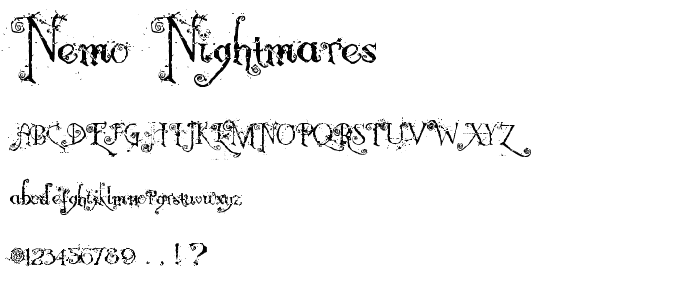 Nemo Nightmares
ABCDEFGHIJKLMNOPQRSTUVWXYZ
abcdefghijklmnopqrstuvwxyz
0123456789 . , ! ?